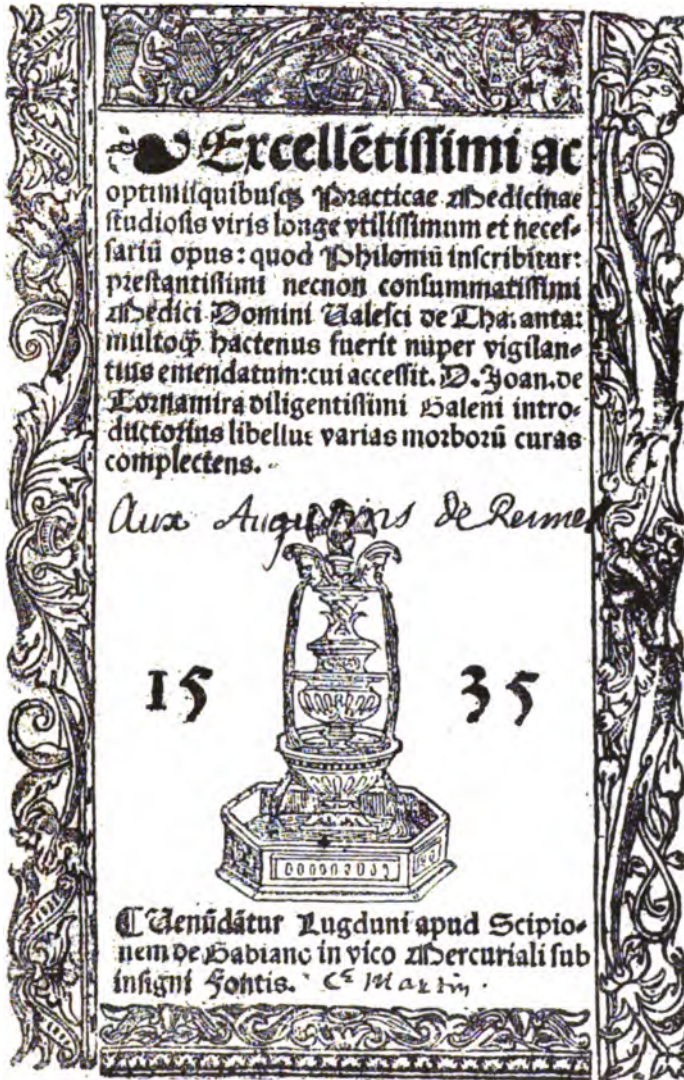 Excellētissimi ac
optimisquibusqꝫ Practicae Medicinae
studiosis viris longe vtilissimum et neces-
sariū opus: quod Philoniū inscribitur:
prestantissimi necnon consummatissimi
Medici Domini Ualesci de Tharanta:
multoqꝫ hactenus fuerit nuper vigilan-
tius emendatum: cui accessit. D. Joan. de
Tornamira diligentissimi Galeni intro-
ductorius libellus varias morborū curas
complectens.
Aux Augustins de Rennes
15 35
Uenūdātur Lugduni apud Scipio-
nem de Gabiano in vico Mercuriali sub
insigni Fontis. Martin.